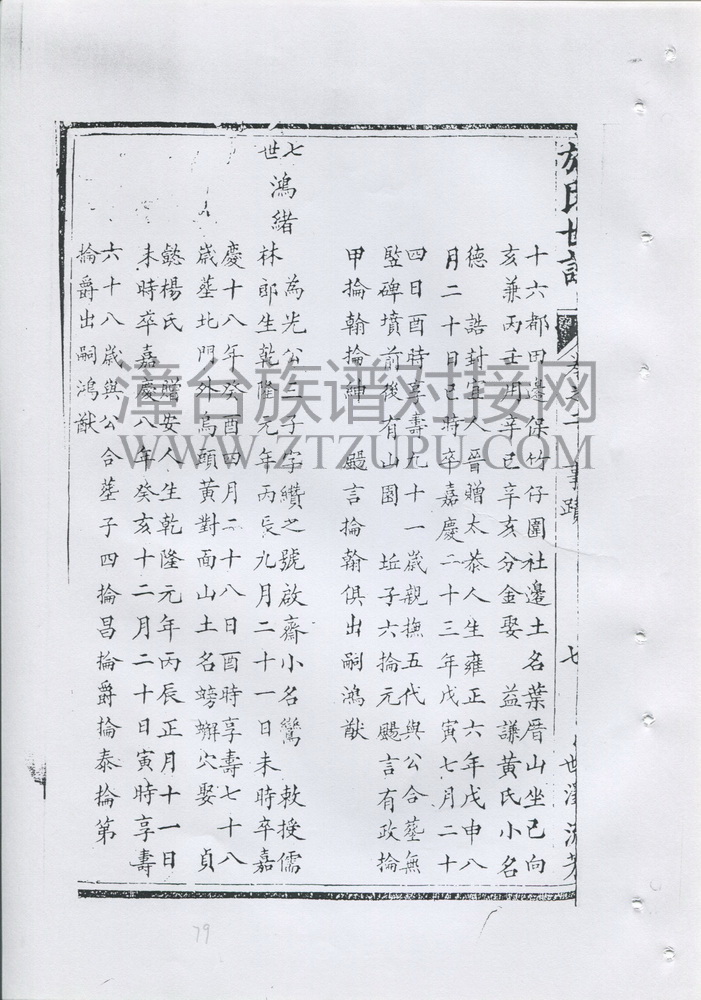 氏世譜
卷之二
事蹟
七
世澤流芳
十六都田邊保竹仔圍社邊土名葉厝山坐巳向
亥兼丙壬用辛巳辛亥分金娶 益謙黃氏小名
德 誥封宜人晉贈太恭人生雍正六年戊申八
月二十日巳時卒嘉慶二十三年戊寅七月二十
四日酉時享壽九十一歲親撫五代與公合塟無
監碑墳前後有山園 坵子六掄元颺言有政掄
甲掄翰掄紳 颺言掄翰俱出嗣鴻猷
七世
鴻緒
為光公三子字纘之號啟齋小名鸞 敕授儒
林郎生乾隆元年丙辰九月二十一日未時卒嘉
慶十八年癸酉四月二十八日酉時享壽七十八
歲塟北門外烏頭黃對面山土名螃蠏穴娶 貞
懿楊氏 贈安人生乾隆元年丙辰正月十一日
未時卒嘉慶八年癸亥十二月二十日寅時享壽
六十八歲與公合塟子四掄昌掄爵掄泰掄第
掄爵出嗣鴻猷
79
漳台族谱对接网
WWW.ZTZUPU.COM